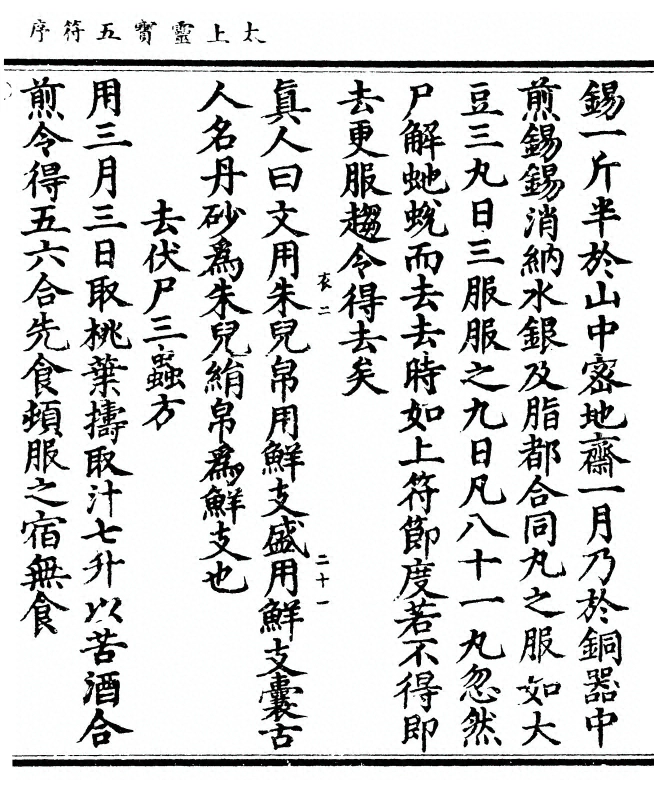 太上靈寶五符序
錫一斤半於山中密地齋一月乃於銅器中
煎錫錫消納水銀及脂都合同丸之服如大
豆三丸日三服服之九日凡八十一丸忽然
尸解虵蛻而去去時如上符節度若不得即
去更服趨令得去矣
衣二 二十一
眞人曰文用朱兒帛用鮮支盛用鮮支囊古
人名丹砂爲朱兒絹帛爲鮮支也
去伏尸三蟲方
用三月三日取桃葉擣取汁七升以苦酒合
煎令得五六合先食頓服之宿無食